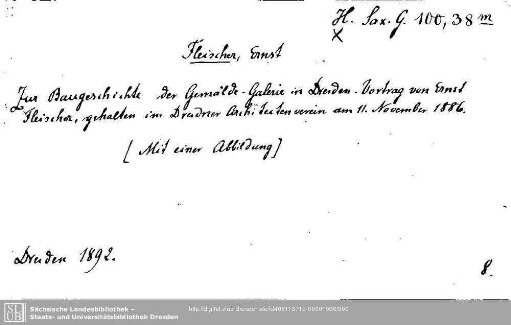 H. Sax. G. 100, 38 m
X
Fleischer, Ernst
Zur Baugeschichte der Gemälde-Galerie in Dresden. Vortrag von Ernst
Fleischer, gehalten im Dresdner Architectenverein am 11. November 1886.
[Mit einer Abbildung]
Dresden 1892.
8.
Sächsische Landesbibliothek –
Staats- und Universitätsbibliothek Dresden